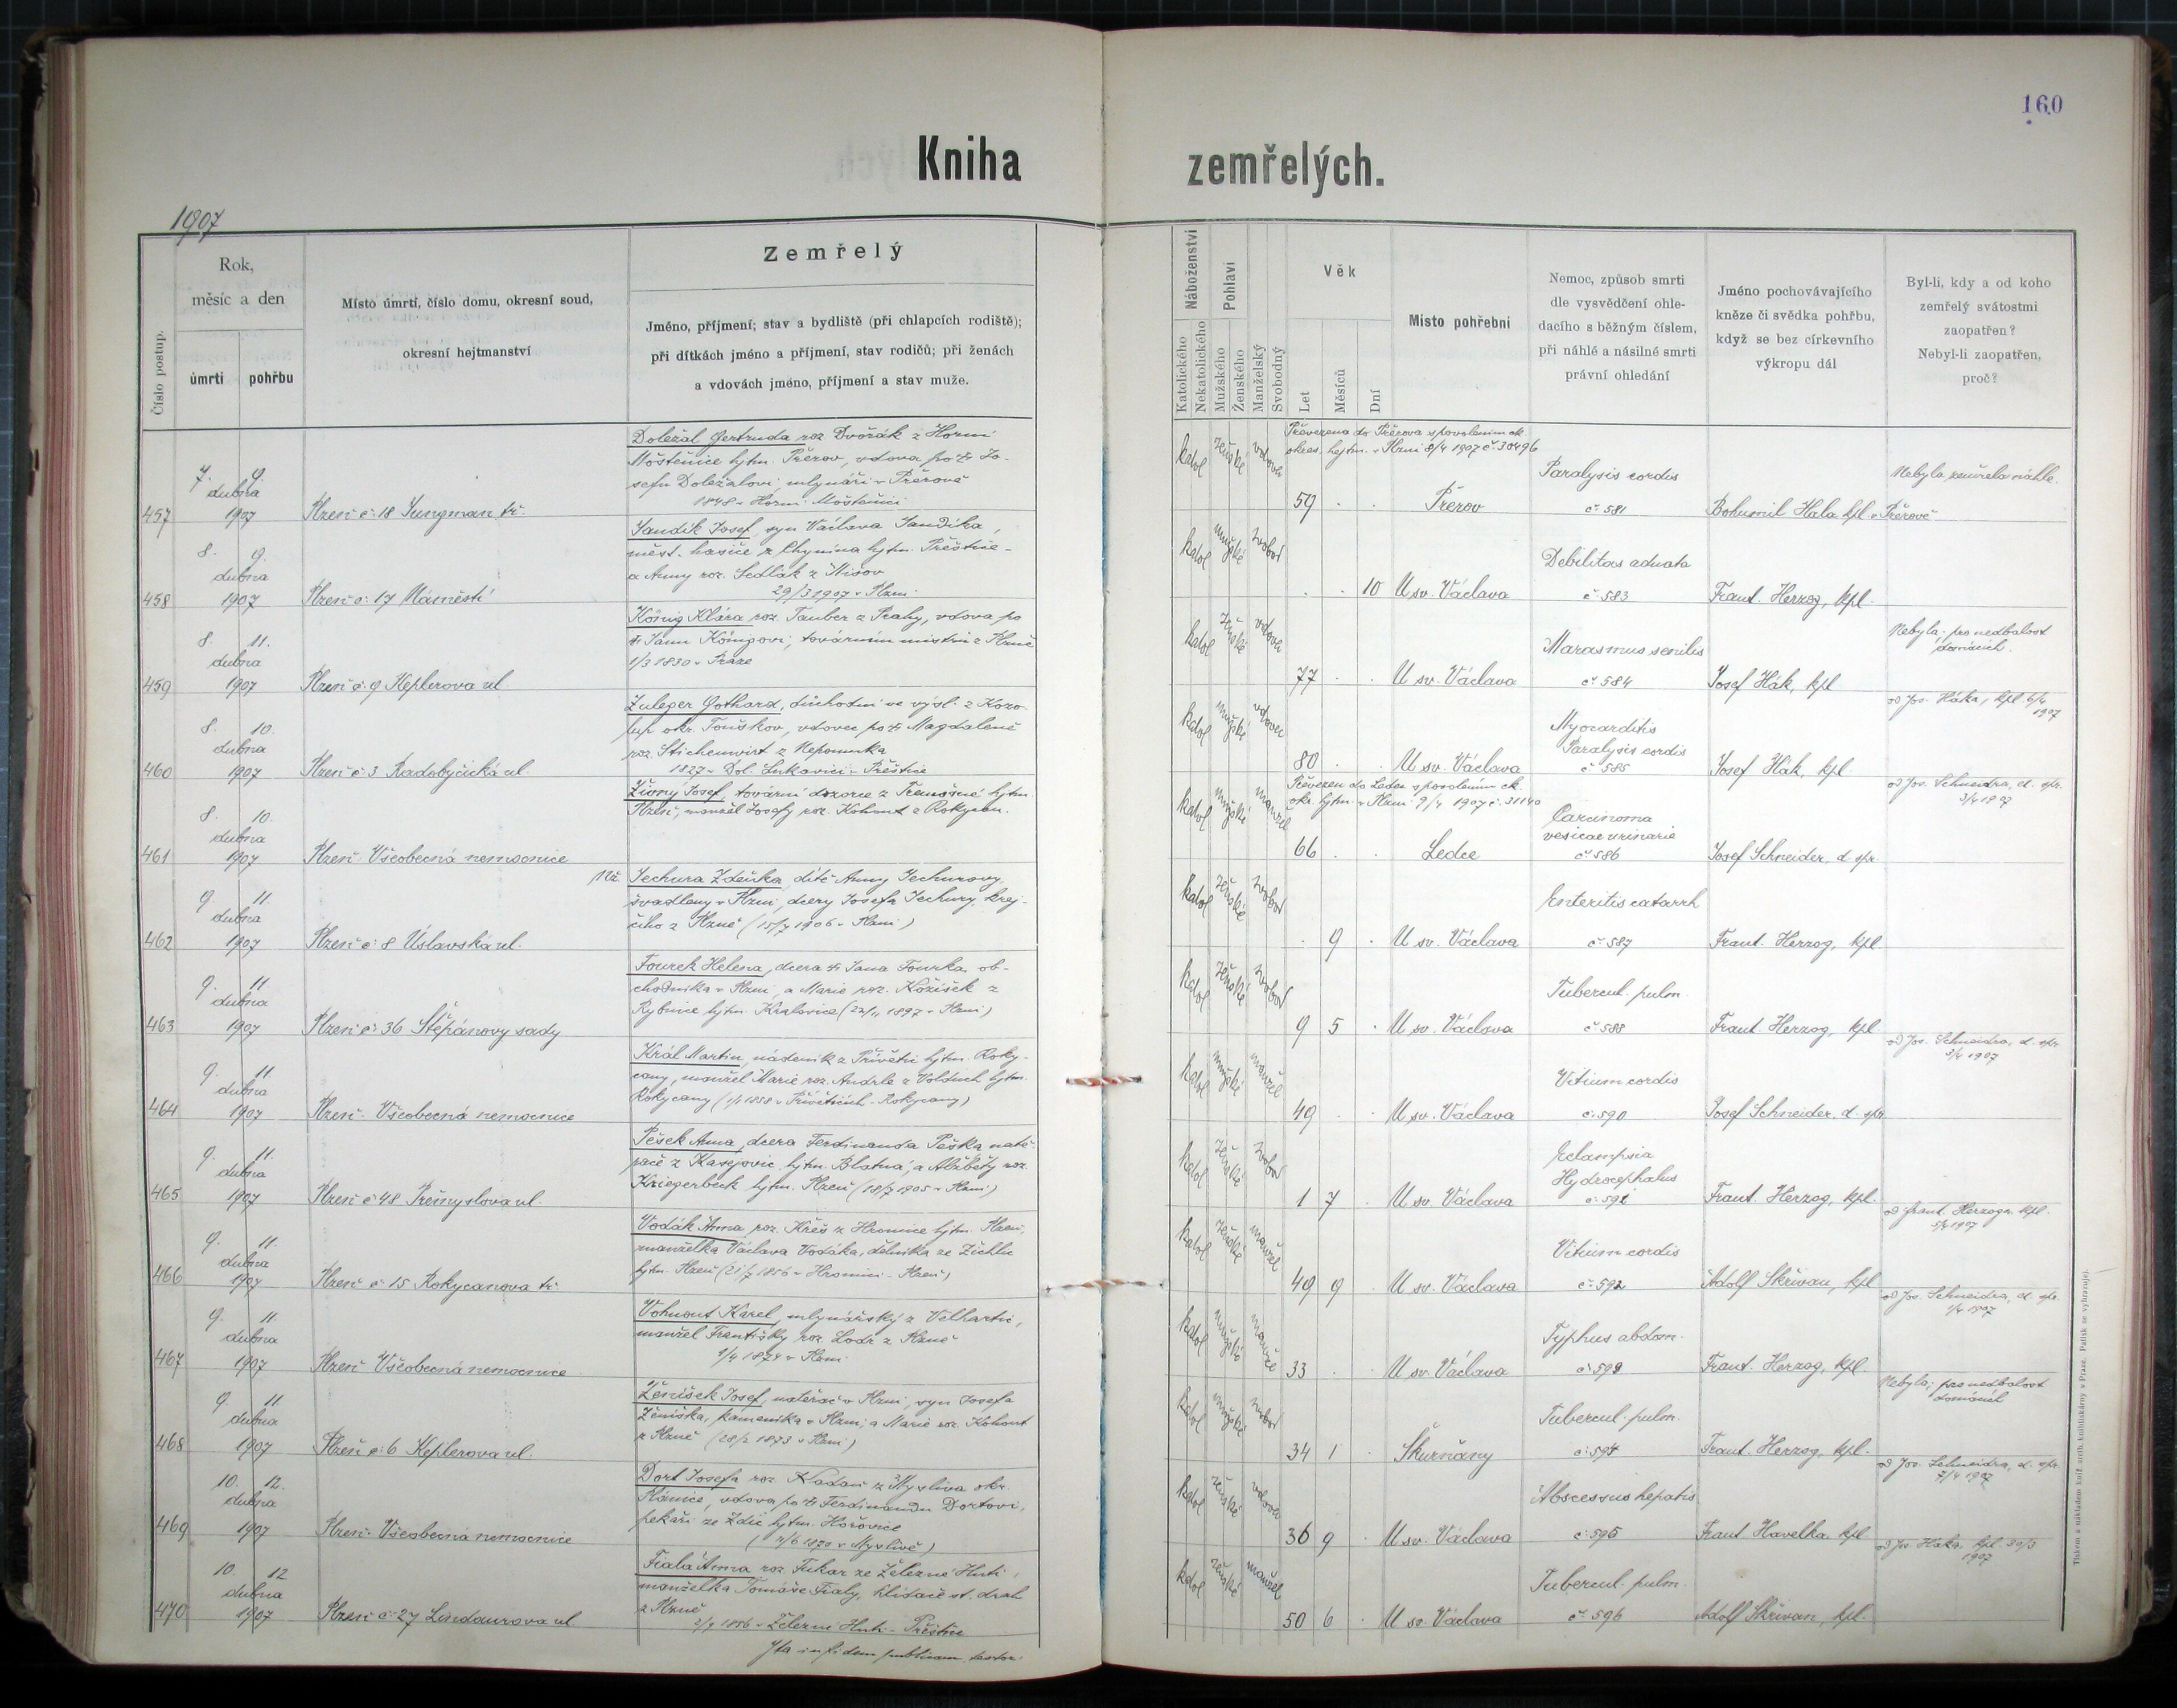 160
Kniha zemřelých.
1907
Číslo postup.
Rok,
měsíc a den
úmrtí
pohřbu
Místo úmrtí, číslo domu, okresní soud,
okresní hejtmanství
Zemřelý
Jméno, příjmení; stav a bydliště (při chlapcích rodiště);
při dítkách jméno a příjmení, stav rodičů; při ženách
a vdovách jméno, příjmení a stav muže.
Náboženství
Katolického
Nekatolického
Pohlaví
Mužského
Ženského
Manželský
Svobodný
Věk
Let
Měsíců
Dní
Místo pohřební
Nemoc, způsob smrti
dle vysvědčení ohle-
dacího s běžným číslem,
při náhlé a násilné smrti
právní ohledání
Jméno pochovávajícího
kněze či svědka pohřbu,
když se bez církevního
výkropu dál
Byl-li, kdy a od koho
zemřelý svátostmi
zaopatřen?
Nebyl-li zaopatřen,
proč?
457
7. 9.
dubna
1907
Plzeň č. 18 Jungman. tř.
Doležal Gertruda roz. Dvořák z Horní
Moštěnice hjtm. Přerov, vdova po † Jo-
sefu Doležalovi, mlynáři v Přerově
1848 v Horní Moštěnici
katol ženské vdova
Převezena do Přerova s povolením ck.
okres. hejtm. v Plzni 8/4 1907 č. 30496
59
Přerov
Paralysis cordis
č. 581
Bohumil Hala kpl. v Přerově
Nebyla, zemřela náhle.
458
8. 9.
dubna
1907
Plzeň č. 17 Náměstí
Jandík Josef, syn Václava Jandíka,
měst. hasiče z Chynína hjtm. Přeštice
a Anny roz. Sedlák z
29/3 1907 v Plzni
katol mužské svobod
10
U sv. Václava
Debilitas adnata
č. 583
Frant. Herzog, kpl.
459
8. 11.
dubna
1907
Plzeň č. 9 Keplerova ul.
König Klára roz. Tauber z Prahy, vdova po
† Janu Königovi, továrním mistru z Plzně
1/3 1830 v Praze
katol ženské vdova
77
U sv. Václava
Marasmus senilis
č. 584
Josef Hák, kpl.
Nebyla; pro nedbalost
domácích.
460
8. 10.
dubna
1907
Plzeň č. 3 Radobyčická ul.
Zuleger Gothard, důchodní ve výsl. z Kozo-
lup okr. Touškov, vdovec po † Magdaleně
roz. Stichenwirt z Nepomuka
1827 v Dol. Lukavici - Přeštice
katol mužské vdovec
80
U sv. Václava
Myocarditis
Paralysis cordis
č. 585
Josef Hák, kpl.
od Jos. Háka, kpl. 6/4
1907
461
8. 10.
dubna
1907
Plzeň Všeobecná nemocnice
Živný Josef, tovární dozorce z Třemošné hjtm.
Plzeň, manžel Josefy roz. Kohout z Rokycan.
katol mužské manžel
Převezen do Ledec s povolením ck.
okr. hjtm. v Plzni 9/4 1907 č. 31140
66
Ledce
Carcinoma
vesicae urinarie
č. 586
Josef Schneider, d. spr.
od Jos. Schneidra, d. spr.
3/4 1907
462
9. 11.
dubna
1907
Plzeň č. 8 Úslavská ul.
Než.
Jechura Zdeňka, dítě Anny Jechurovy,
švadleny v Plzni, dcery Josefa Jechury, krej-
čího z Plzně (15/7 1906 v Plzni)
katol ženské svobod
9
U sv. Václava
Enteritis catarrh
č. 587
Frant. Herzog, kpl.
463
9. 11
dubna
1907
Plzeň č. 36 Štěpánovy sady
Fourek Helena, dcera † Jana Fourka, ob-
chodníka v Plzni, a Marie roz. Kožíšek z
Rybnice hjtm. Kralovice (22/11 1897 v Plzni)
katol ženské svobod
9 5
U sv. Václava
Tubercul. pulm.
č. 588
Frant. Herzog, kpl.
464
9. 11
dubna
1907
Plzeň Všeobecná nemocnice
Král Martin, nádeník z Přívětic hjtm. Roky-
cany, manžel Marie roz. Andrle z Volduch hjtm.
Rokycany (1/1 1858 v Příveticích - Rokycany)
katol mužské manžel
49
U sv. Václava
Vitium cordis
č. 590
Josef Schneider, d. spr.
od Jos. Schneidra, d. spr.
3/4 1907
465
9. 11.
dubna
1907
Plzeň č. 48 Přemyslova ul.
Pešek Anna, dcera Ferdinanda Peška natě-
rače z Kasejovic, hjtm. Blatná, a Alžběty roz.
Kriegerbeck hjtm. Plzeň (18/7 1905 v Plzni)
katol ženské svobod
1 7
U sv. Václava
Eclampsia
Hydrocephalus
č. 591
Frant. Herzog, kpl.
466
9. 11.
dubna
1907
Plzeň č. 15 Rokycanova tř.
Vodák Anna roz. Křeš z Hromice hjtm. Plzeň,
manželka Václava Vodáka, dělníka ze Žichlic
hjtm. Plzeň (21/7 1856 v Hromici - Plzeň)
katol ženské manžel
49 9
U sv. Václava
Vitium cordis
č. 592
Adolf Skřivan, kpl.
od Frant. Herzoga kpl.
5/4 1907
467
9. 11
dubna
1907
Plzeň Všeobecná nemocnice
Vohnout Karel, mlynářský z Velhartic,
manžel Františky roz. Lodr z Plzně
1/4 1874 v Plzni
katol mužské manžel
33
U sv. Václava
Typhus abdom.
č. 593
Frant. Herzog, kpl.
od Jos. Schneidra, d. spr.
1/4 1907
468
9. 11
dubna
1907
Plzeň č. 6 Keplerova ul.
Ženíšek Josef, natěrač v Plzni, syn Josefa
Ženíška, kameníka v Plzni, a Marie roz. Kohout
z Plzně (28/2 1873 v Plzni)
katol mužské svobod
34 1
Skurňany
Tubercul. pulm.
č. 594
Frant. Herzog, kpl.
Nebyla; pro nedbalost
domácích
469
10. 12.
dubna
1907
Plzeň Všeobecná nemocnice
Dort Josefa roz. z Myslíva okr.
Plánice, vdova po † Ferdinandu Dortovi,
pekaři ze Zdic hjtm. Hořovice
(4/6 1870 v Myslívě)
katol ženské vdova
36 9
U sv. Václava
Abscessus hepatis
č. 595
Frant Havelka, kpl
od Jos. Schneidra, d. spr.
7/4 1907
470
10. 12
dubna
1907
Plzeň č. 27 Lindaurova ul.
Fiala Anna roz. Fukar ze Železné Huti,
manželka Tomáše Fialy, hlídače st. drah
z Plzně
2/9 1856 v Železné Huti - Přeštice
katol ženské manžel
50 6
U sv. Václava
Tubercul. pulm.
č. 596
Adolf Skřivan, kpl.
od Jos. Háka, kpl. 30/3
1907
Ita in fidem publicam testor:
Tiskem a nákladem kníž. arcib. knihtiskárny v Praze. Patisk se vyhrazuje.